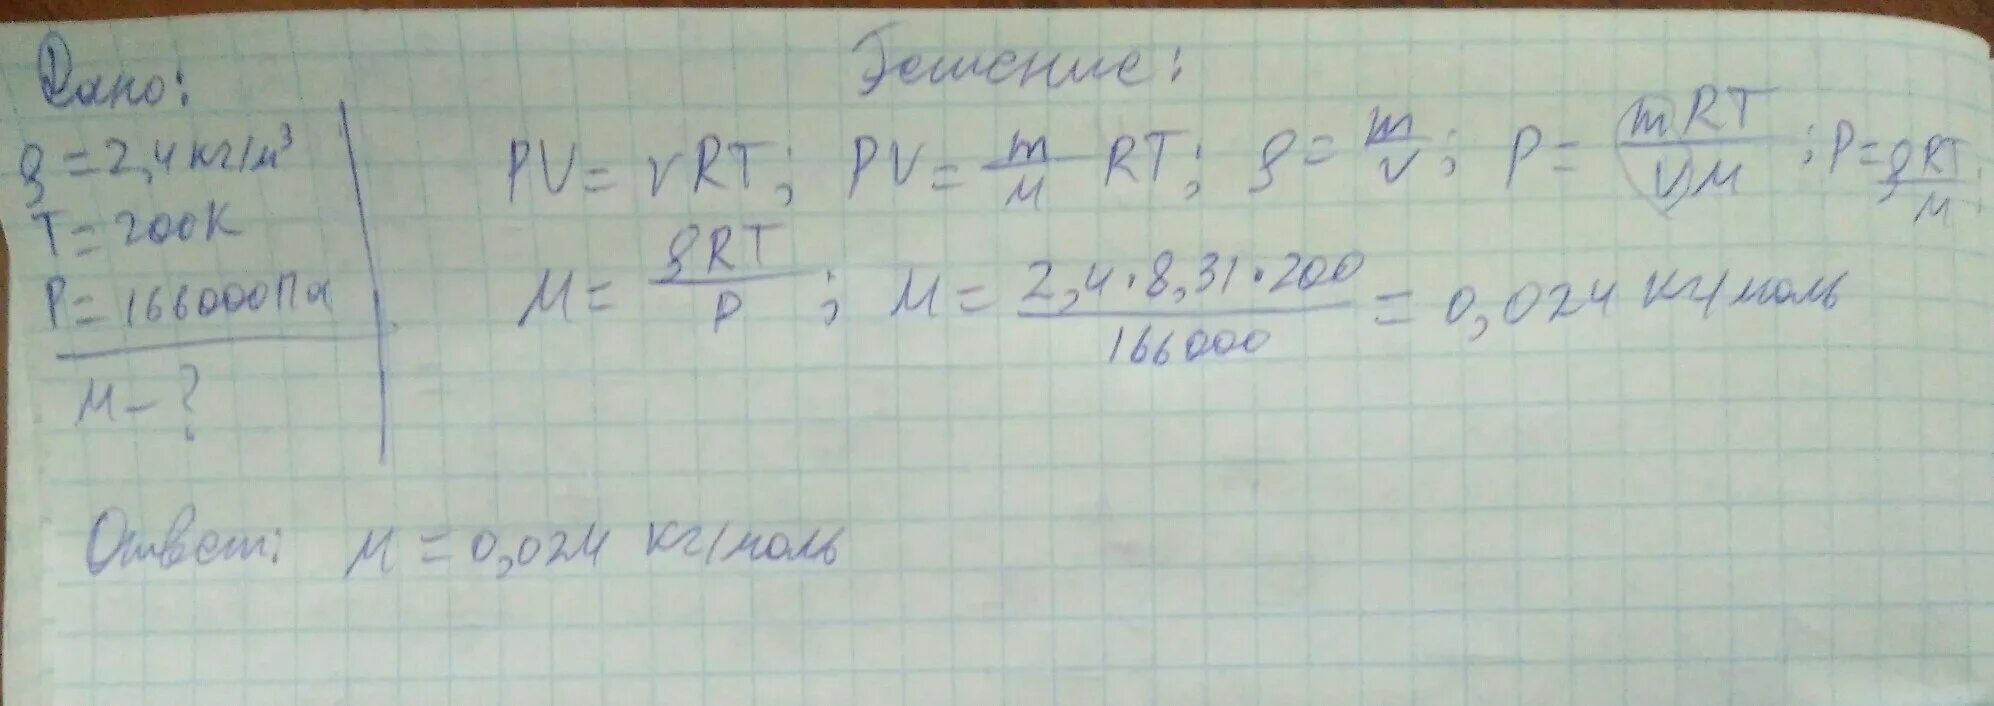 Дано:
ρ = 2,4 кг/м³
T = 200К
P = 166000Па
M – ?
Решение:
PV = νRT; PV = m/M RT; ρ = m/V; P = mRT/VM; P = ρRT/M;
M = ρRT/P; M = 2,4·8,31·200/166000 = 0,024 кг/моль
Ответ: M = 0,024 кг/моль